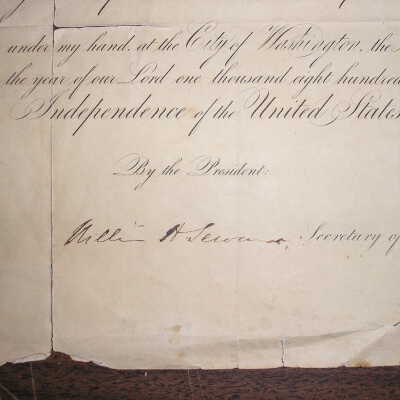 under my hand, at the City of Washington, the
the year of our Lord one thousand eight hundred
Independence of the United States
By the President:
William H Seward, Secretary of